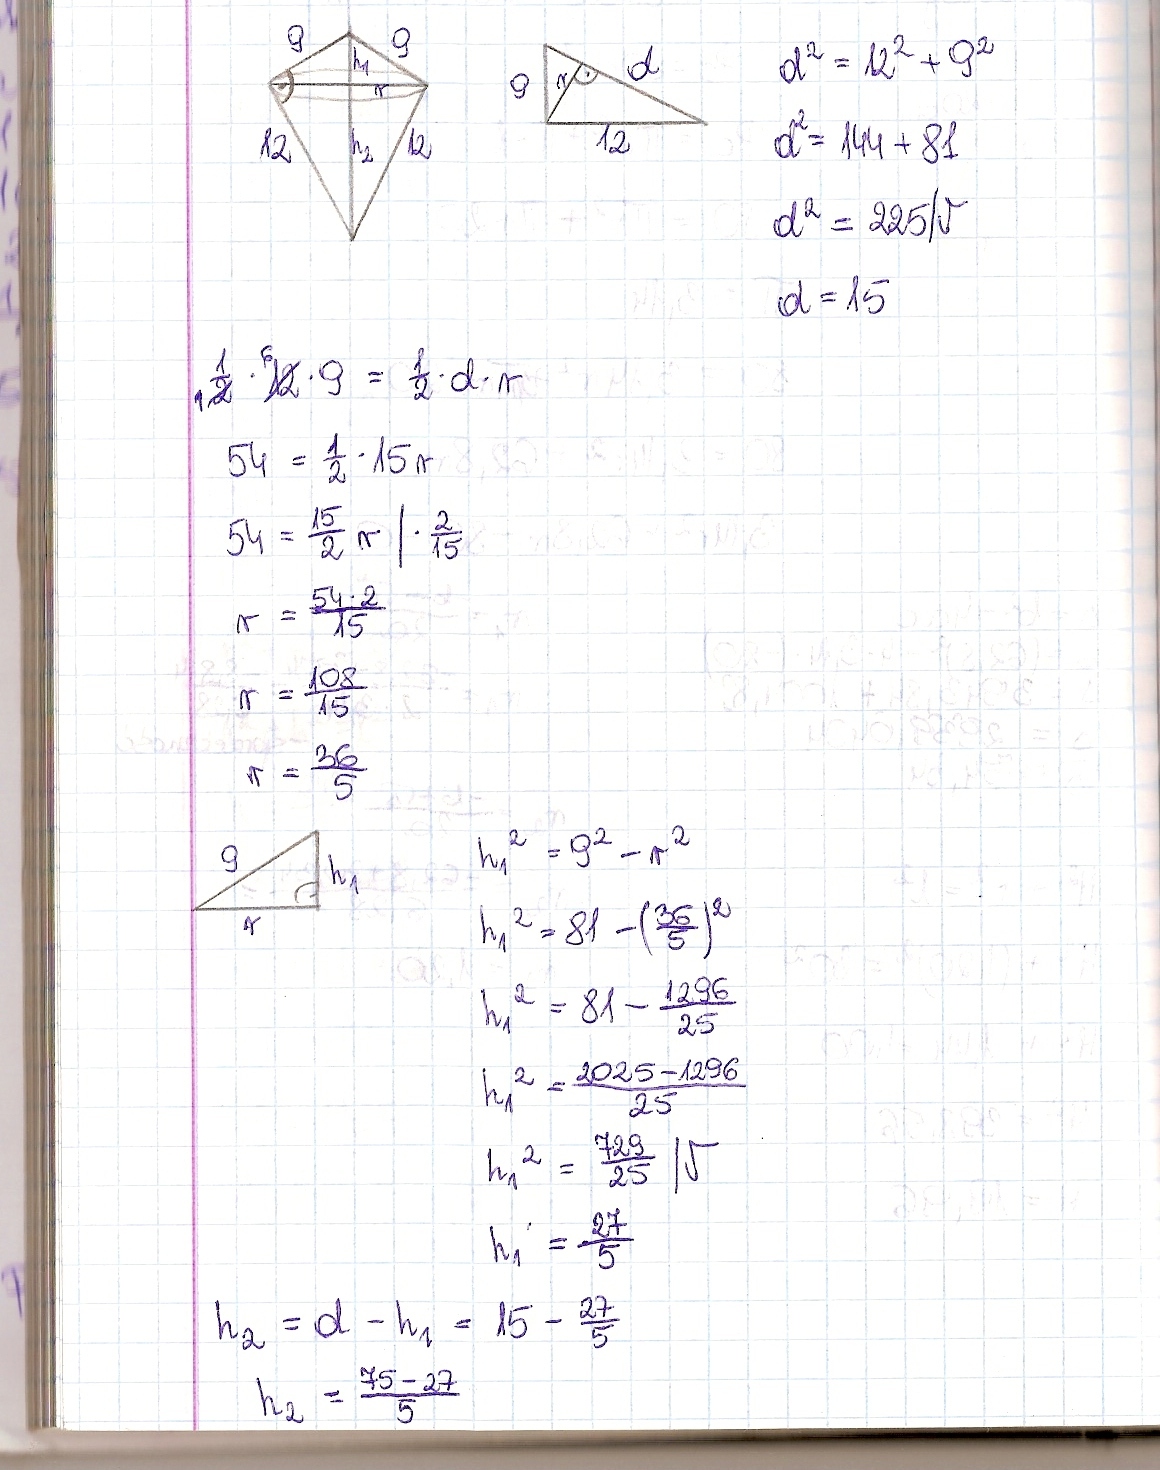 9 9 h₁ r 12 h₂ 12
9 r d 12
d² = 12² + 9²
d² = 144 + 81
d² = 225 |√
d = 15
1/2 · 12 · 9 = 1/2 · d · r
1 6
54 = 1/2 · 15r
54 = 15/2 r | · 2/15
r = 54·2/15
r = 108/15
r = 36/5
9 h₁ r
h₁² = 9² − r²
h₁² = 81 − (36/5)²
h₁² = 81 − 1296/25
h₁² = 2025−1296/25
h₁² = 729/25 |√
h₁ = 27/5
h₂ = d − h₁ = 15 − 27/5
h₂ = 75−27/5